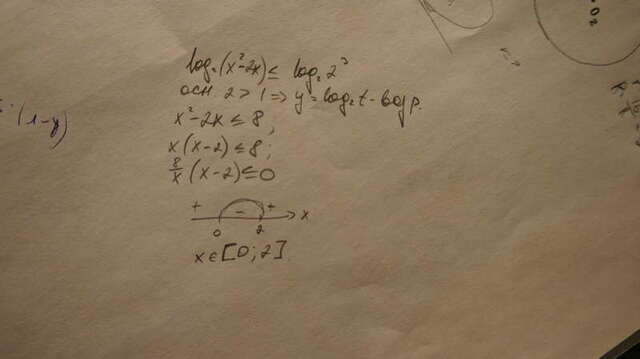 log₂(x²-2x) ≤ log₂2³
осн 2 > 1 => y = log₂t - возр.
x²-2x ≤ 8;
x(x-2) ≤ 8;
8/x (x-2) ≤ 0
+ - + x
0 2
x ∈ [0; 2]
(1-y)